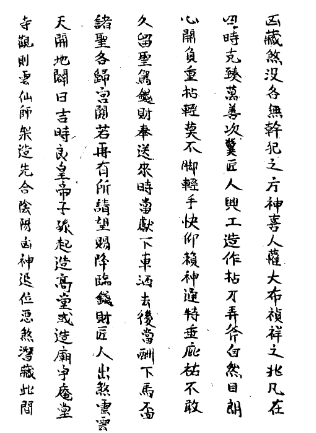 凶藏煞没各無幹犯之方神喜人懽大布禎祥之兆凡在
四時克臻萬善次冀匠人興工造作拈刀弄斧自然目朗
心開負重拈輕莫不脚輕手快仰賴神通特垂庇祐不敢
久留聖駕錢財奉送來時當獻下車酒去後當酬下馬盃
諸聖各歸宮闕若再有所請望賜降臨錢財匠人出煞雲雲
天開地闢日吉時良皇帝子孫起造高堂或造廟宇庵堂
寺觀則雲仙師架造先合陰陽凶神退位惡煞潛藏此間